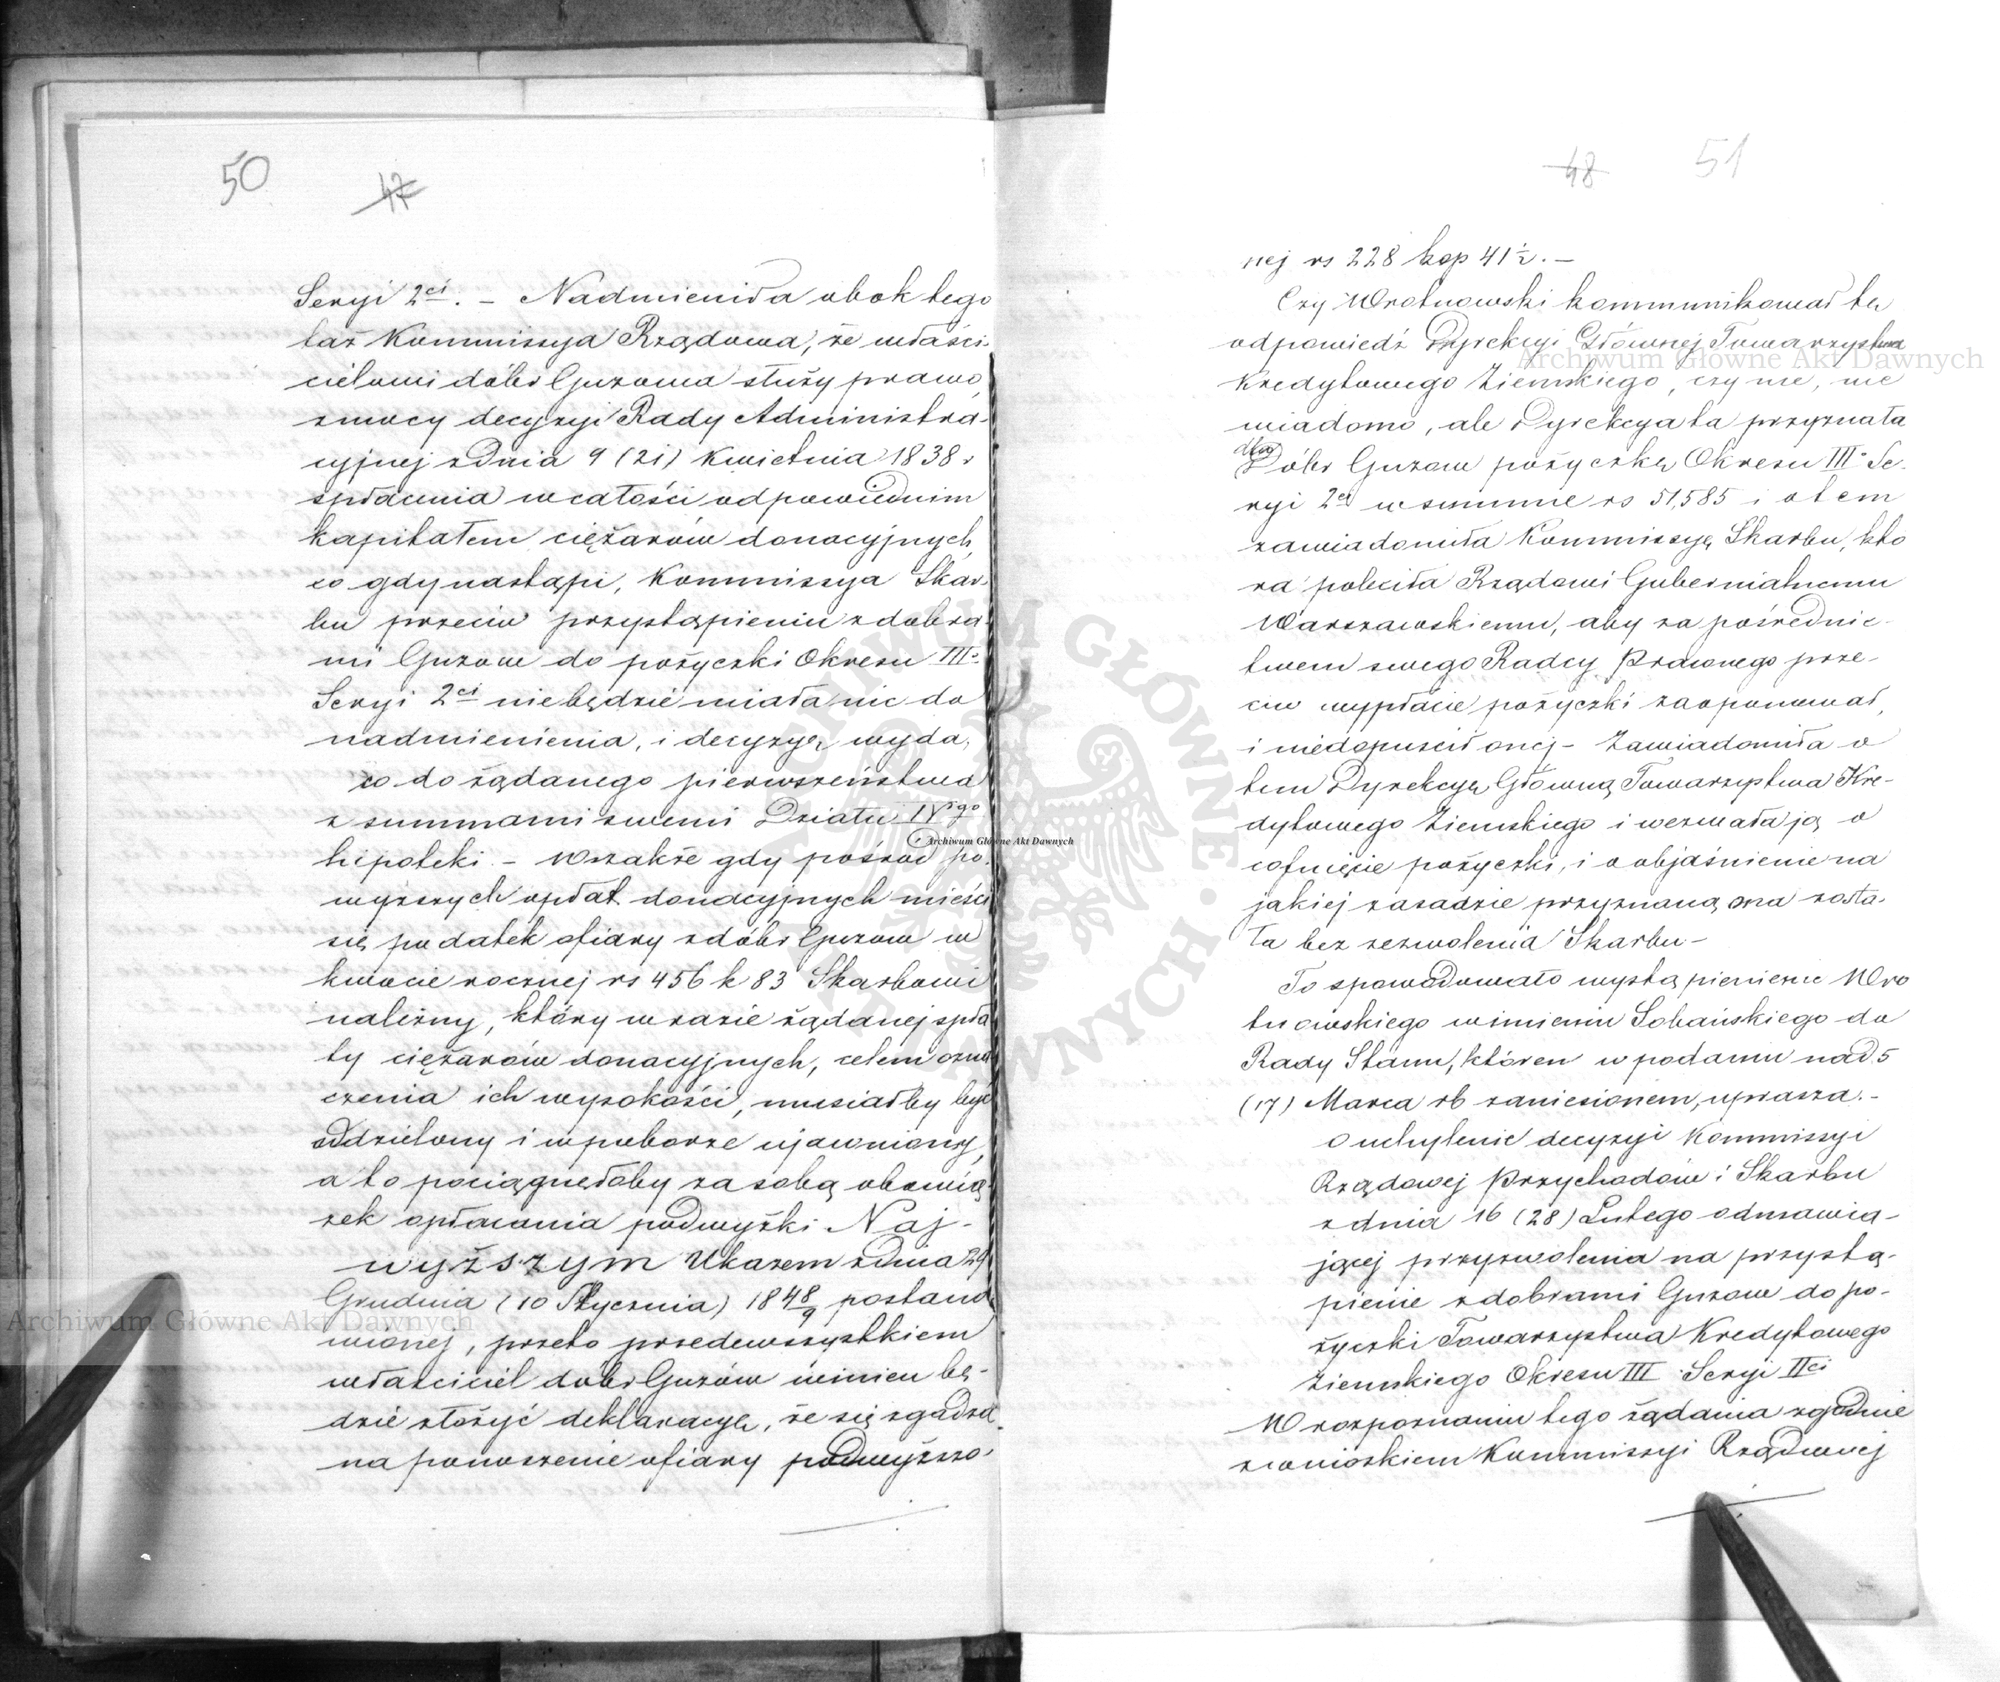 50
47
Seryi 2ei. – Nadmieniła obok tego
taż Kommissya Rządowa, że właści-
cielowi dóbr Guzowa służy prawo
z mocy decyzyi Rady Administra-
cyjnej z dnia 9 (21) Kwietnia 1838 r
spłacenia w całości odpowiednim
kapitałem ciężarów donacyjnych,
co gdy nastąpi, Kommissya Skar-
bu przeciw przystąpieniu z dobra-
mi Guzow do pożyczki Okresu III°
Seryi 2ei nie będzie miała nic do
nadmienienia, i decyzyę wyda,
co do żądanego pierwszeństwa
z summami swemi Działu IVigo
hipoteki. – Wszakże gdy pośród po-
wyższych opłat donacyjnych mieści
się podatek ofiary z dóbr Guzow w
kwocie rocznej rs 456 k 83 Skarbowi
należny, który w razie żądanej spła
ty ciężarów donacyjnych, celem ozna
czenia ich wysokości, musiałby być
oddzielony i w poborze ujawniony,
a to pociągnęłoby za sobą obowią
zek opłacania podwyżki Naj-
wyższym Ukazem z dnia 29
Grudnia (10 Stycznia) 1848/9 postano
wionej, przeto przedewszystkiem
właściciel dóbr Guzów winien bę-
dzie złożyć deklaracyę, że się zgadza
na ponoszenie ofiary podwyższo-
48
51
nej rs 228 kop 41½. –
Czy Wrotnowski kommunikował tę
odpowiedź Dyrekcyi Głównej Towarzystwa
Kredytowego Ziemskiego, czy nie, nie
wiadomo, ale Dyrekcya ta przyznała
dla
Dóbr Guzow pożyczkę Okresu III° Se-
ryi 2ei w summie rs 51,585 i o tem
zawiadomiła Kommissyę Skarbu, któ
ra poleciła Rządowi Gubernialnemu
Warszawskiemu, aby za pośrednic-
twem swego Radcy Prawnego prze-
ciw wypłacie pożyczki zaoponował,
i niedopuścił onej – Zawiadomiła o
tem Dyrekcyę Główną Towarzystwa Kre-
dytowego Ziemskiego i wezwała ją o
cofnięcie pożyczki, i o objaśnienie na
jakiej zasadzie przyznaną ona zosta-
ła bez zezwolenia Skarbu –
To spowodowało wystąpienie Wro
tnowskiego w imieniu Sobańskiego do
Rady Stanu, któren w podaniu nad. 5
(17) Marca rb zaniesionem, uprasza. –
o uchylenie decyzyi Kommissyi
Rządowej Przychodów i Skarbu
z dnia 16 (28) Lutego odmawia-
jącej przyzwolenia na przystą-
pienie z dobrami Guzow do po-
życzki Towarzystwa Kredytowego
Ziemskiego Okresu III Seryi IIei
W rozpoznaniu tego żądania zgodnie
z wnioskiem Kommissyi Rządowej
Archiwum Główne Akt Dawnych
Archiwum Główne Akt Dawnych
Archiwum Główne Akt Dawnych
ARCHIWUM GŁÓWNE AKT DAWNYCH